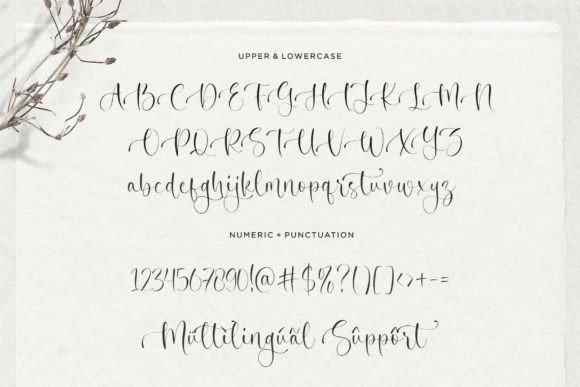 UPPER & LOWERCASE
ABCDEFGHIJKLMN
OPQRSTUVWXYZ
abcdefghijklmnopqrstuvwxyz
NUMERIC + PUNCTUATION
1234567890!@#$%?()[]<>+-=
Mültilingúãl Sûppôrt